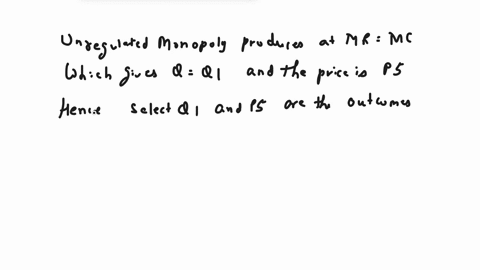 Unregulated Monopoly produces at MR = MC
Which gives Q = Q1 and the price is P5
Hence select Q1 and P5 are the outcomes